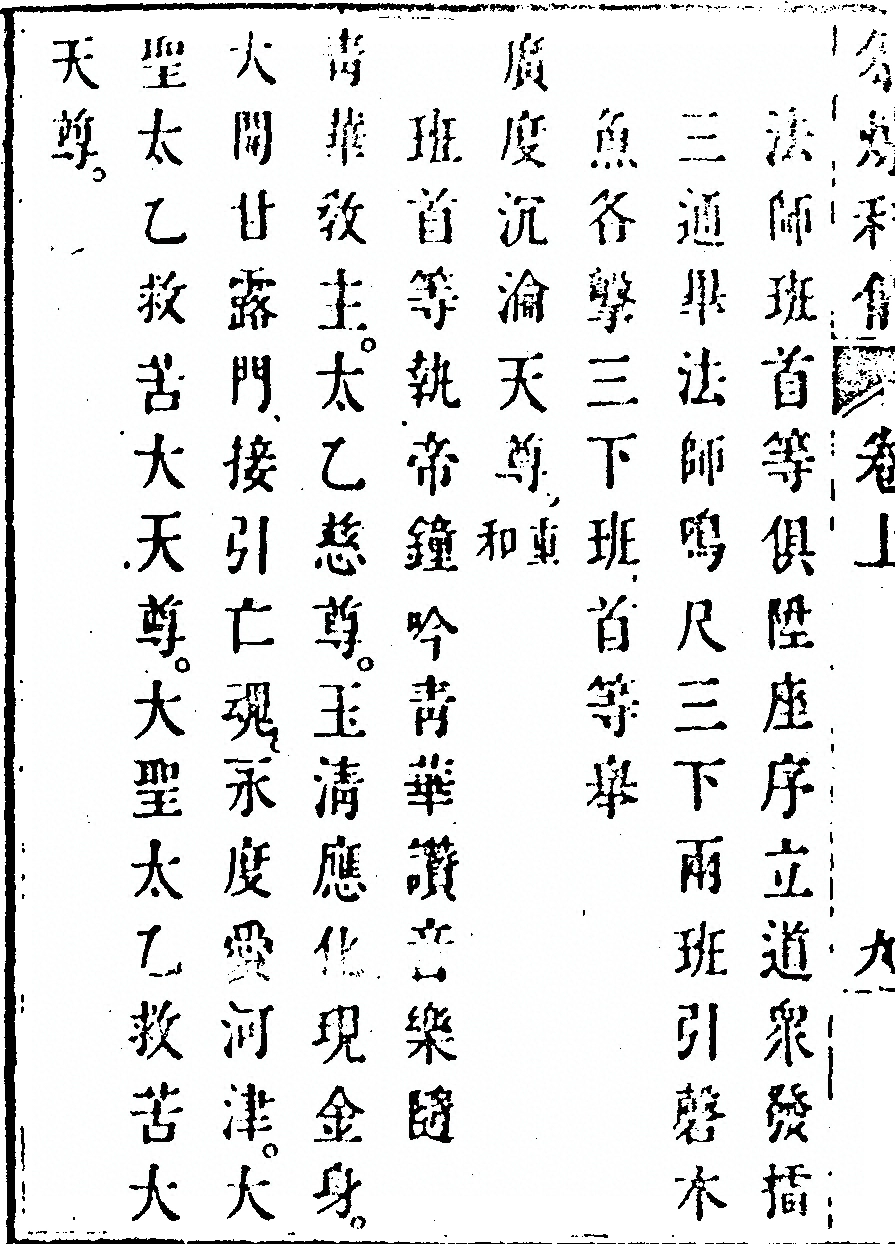 卷上
九
法師班首等俱陞座序立道衆發擂
三通畢法師鳴尺三下兩班引磬木
魚各擊三下班首等舉
廣度沉淪天尊、重和
班首等執帝鐘吟青華讚音樂隨
青華教主。太乙慈尊。玉清應化現金身。
大開甘露門、接引亡魂、永度愛河津。大
聖太乙救苦大天尊。大聖太乙救苦大
天尊。